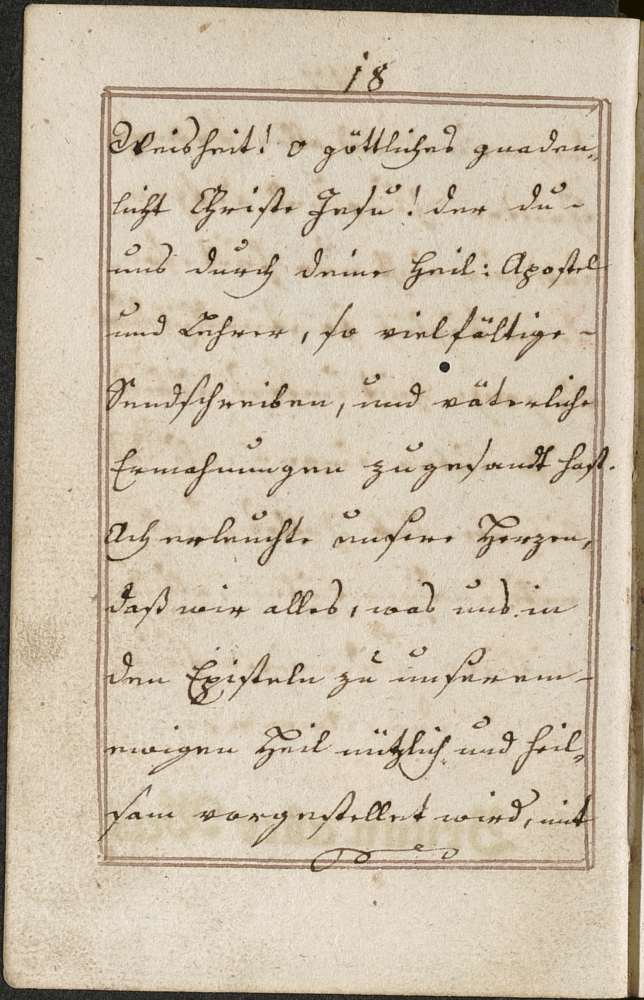 18
Weisheit! o göttliches gnaden„
licht Christe Jesu! der du -
uns durch deine heil: Apostel
und Lehrer, so vielfältige -
Sendschreiben, und väterliche
Ermahnungen zugesandt hast.
Ach erleuchte unsere Herzen,
daß wir alles, was uns in
den Episteln zu unserem -
ewigen Heil nützlich und heil„
sam vorgestellet wird, mit